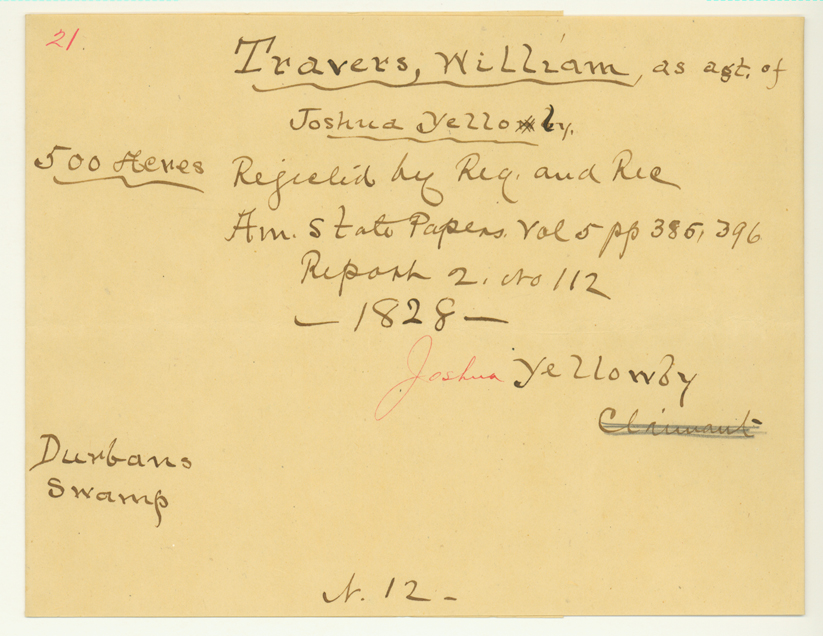 21.
Travers, William, as agt. of
Joshua Yellowby.
500 Acres
Rejected by Reg. and Rec
Am. State Papers. Vol 5 pp 385, 396
Report 2. No 112
— 1828 —
Joshua Yellowby
Claimant
Durbans
Swamp
N. 12 -